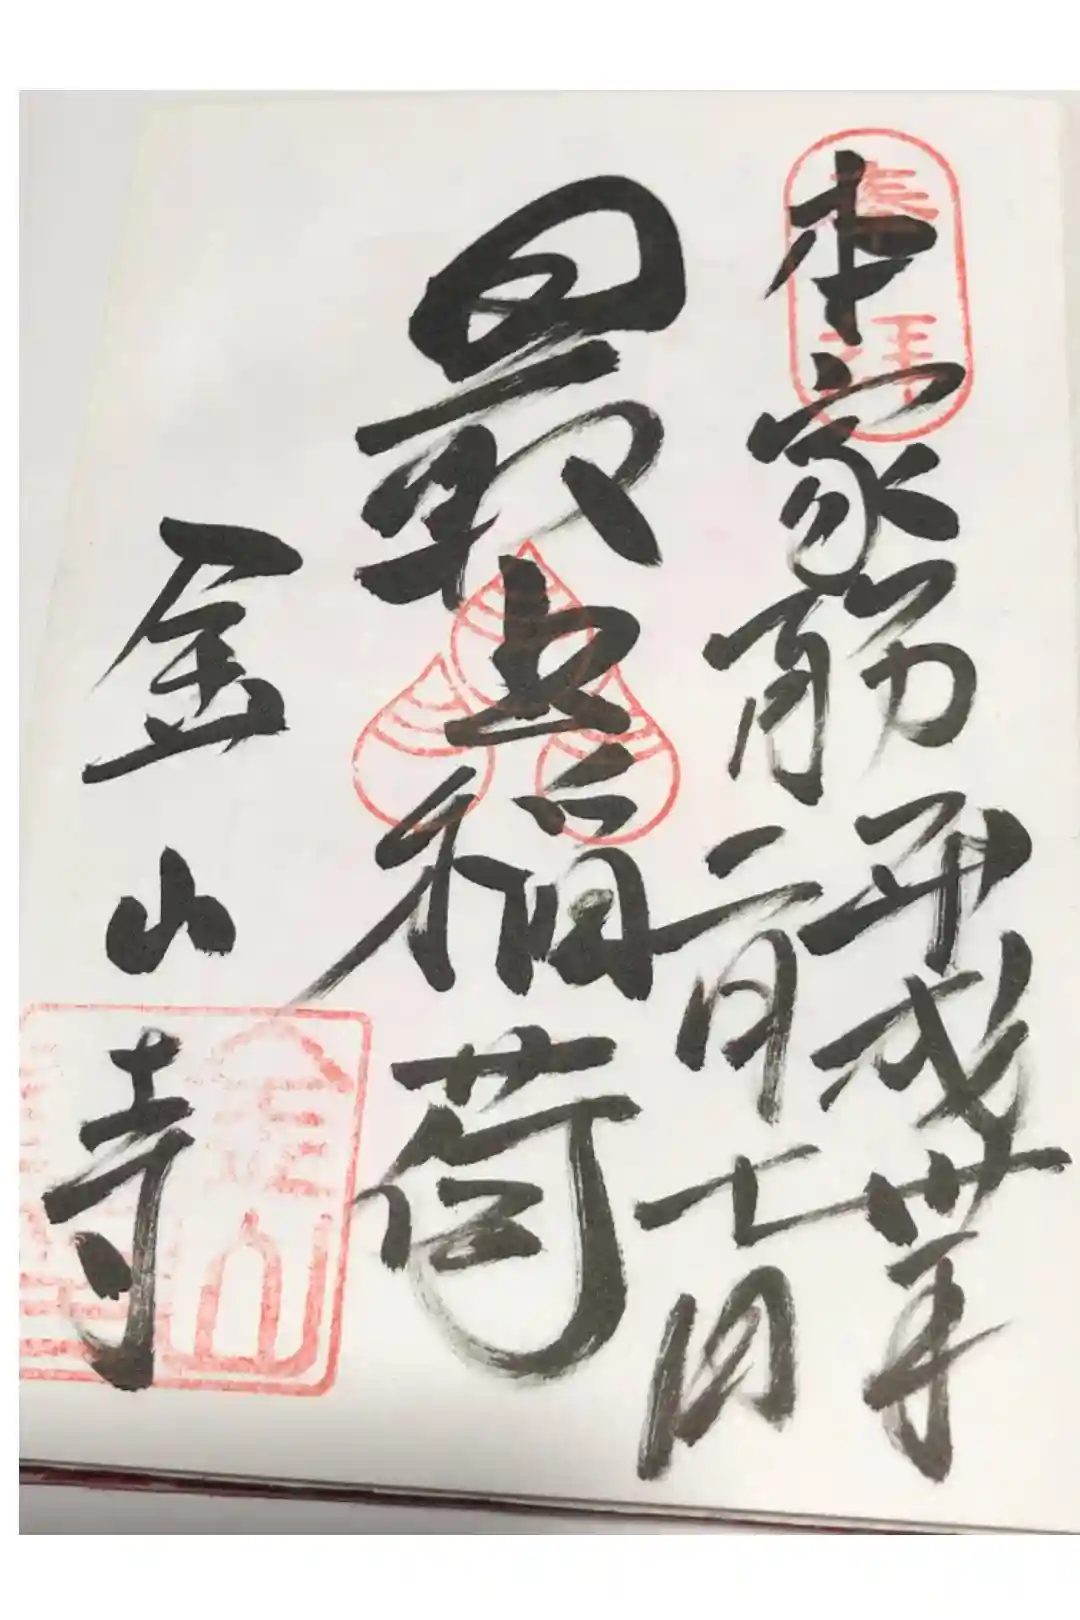 奉拝
本家
平成卅年
二月七日
最上稲荷
金山寺